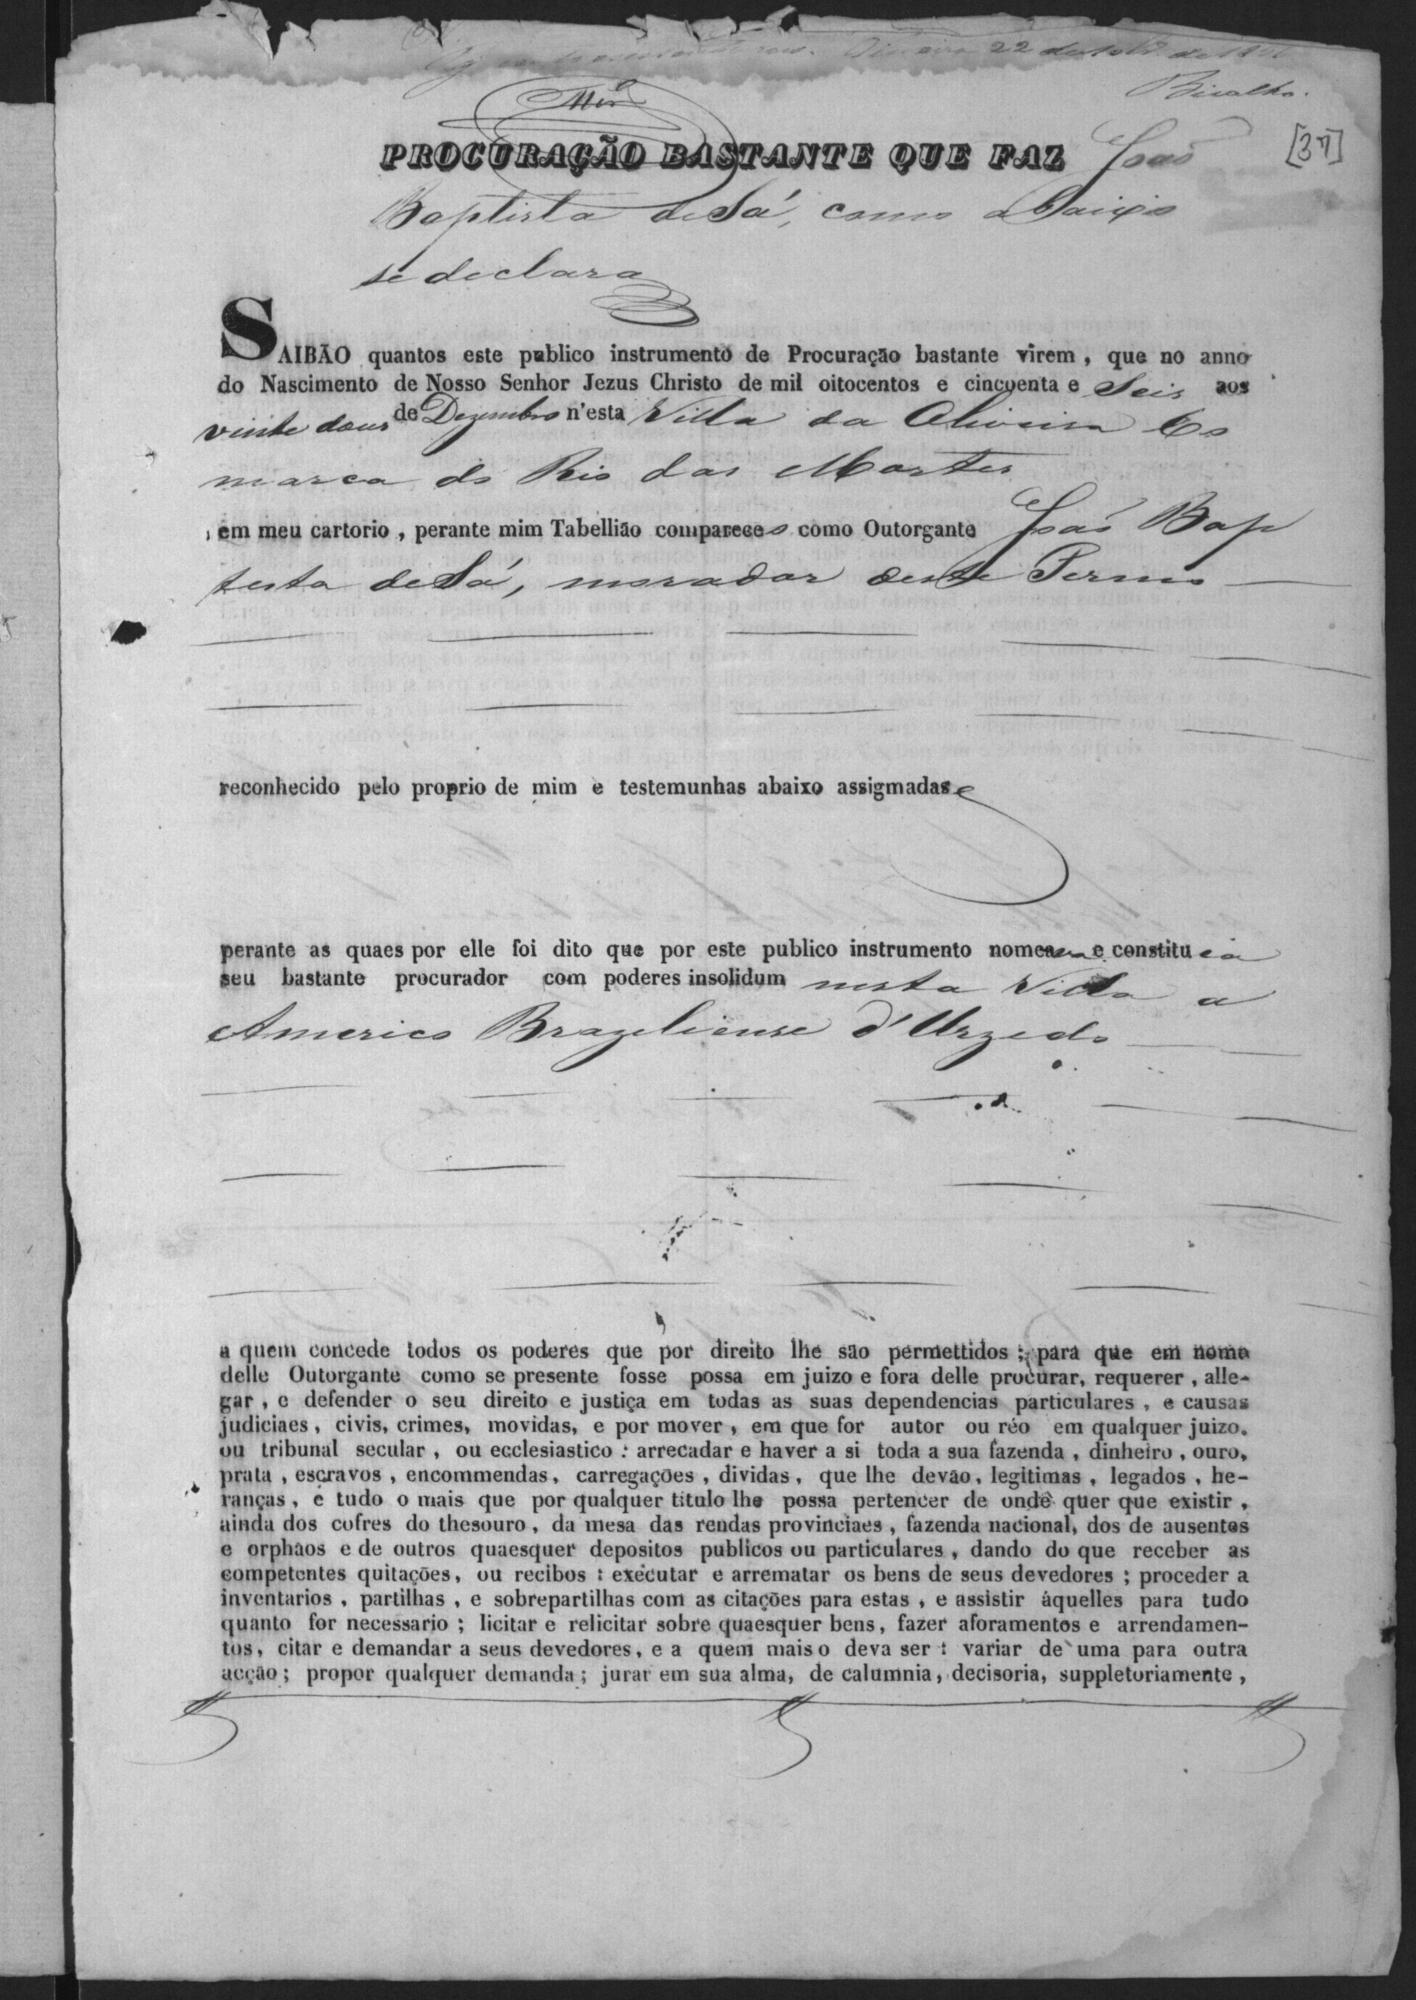 22 de
Bicalho.
[37]
PROCURAÇÃO BASTANTE QUE FAZ João
Baptista de Sá, como abaixo
se declara
SAIBÃO quantos este publico instrumento de Procuração bastante virem, que no anno
do Nascimento de Nosso Senhor Jezus Christo de mil oitocentos e cincoenta e Seis aos
vinte dous de Dezembro n'esta Villa da Oliveira Co
marca do Rio das Mortes
em meu cartorio, perante mim Tabellião compareceo como Outorgante João Bap
tista de Sá, morador deste Termo
reconhecido pelo proprio de mim e testemunhas abaixo assigmadas
perante as quaes por elle foi dito que por este publico instrumento nomeava e constituia
seu bastante procurador com poderes insolidum nesta Villa a
Americo Brazeliense d'Urzedo
a quem concede todos os poderes que por direito lhe são permettidos ; para que em nome
delle Outorgante como se presente fosse possa em juizo e fora delle procurar, requerer, alle-
gar, e defender o seu direito e justiça em todas as suas dependencias particulares, e causas
judiciaes, civis, crimes, movidas, e por mover, em que for autor ou réo em qualquer juizo.
ou tribunal secular, ou ecclesiastico : arrecadar e haver a si toda a sua fazenda, dinheiro, ouro,
prata, escravos, encommendas, carregações, dividas, que lhe devão, legitimas, legados, he-
ranças, e tudo o mais que por qualquer titulo lhe possa pertencer de onde quer que existir,
ainda dos cofres do thesouro, da mesa das rendas provinciaes, fazenda nacional, dos de ausentes
e orphãos e de outros quaesquer depositos publicos ou particulares, dando do que receber as
competentes quitações, ou recibos : executar e arrematar os bens de seus devedores ; proceder a
inventarios, partilhas, e sobrepartilhas com as citações para estas, e assistir áquelles para tudo
quanto for necessario ; licitar e relicitar sobre quaesquer bens, fazer aforamentos e arrendamen-
tos, citar e demandar a seus devedores, e a quem mais o deva ser : variar de uma para outra
acção ; propor qualquer demanda ; jurar em sua alma, de calumnia, decisoria, suppletoriamente,